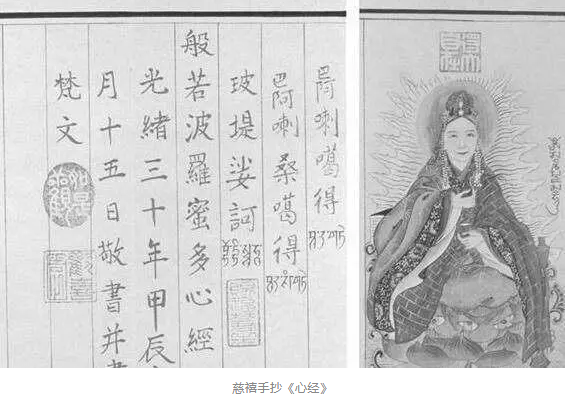 喇噶得
喇桑噶得
玻堤娑訶
般若波羅蜜多心經
光緒三十年甲辰
月十五日敬書并
梵文
慈禧手抄《心经》